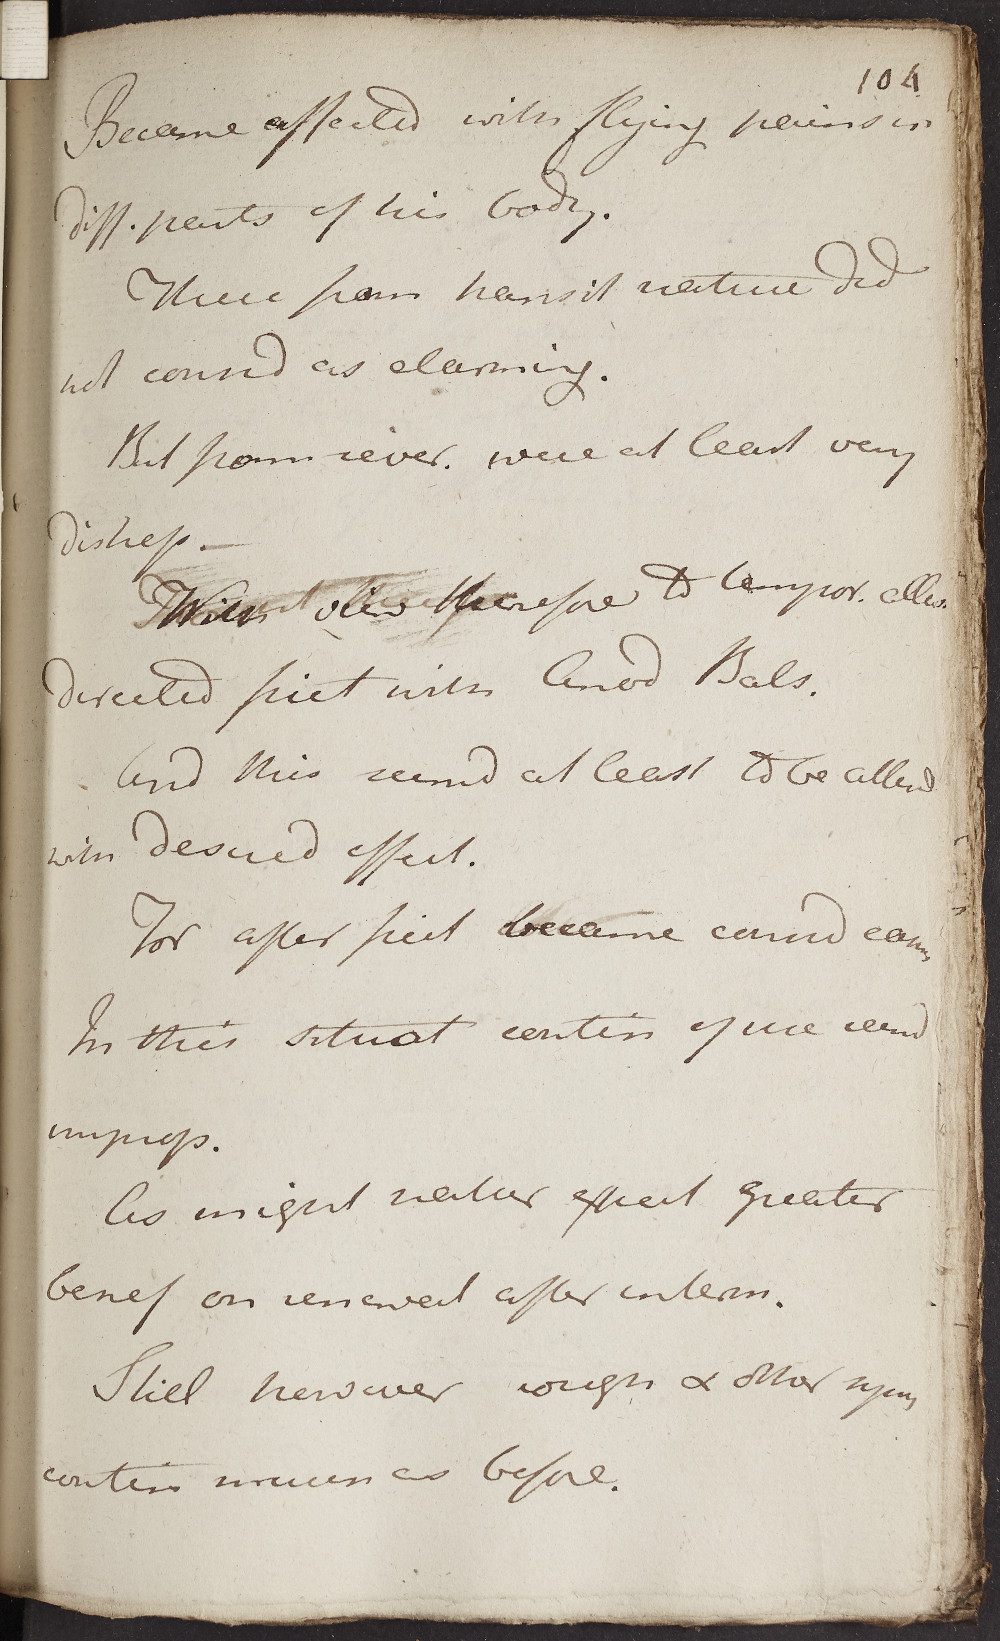 104
Became affected with flying pains in
diff. parts of his body.
These from transit nature did
not consid as alarming.
But from sever. were at least very
distress. —
With view therefore to tempor. allev.
directed frict with Anod Bals.
And this seemd at least to be attend
with desired effect.
For after frict became consid easy
In this situat contin of use seemd
improp.
As might rather expect greater
benef on renewal after interm.
Still however cough & other sym
contin much as before.